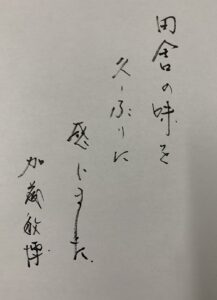 田舎の味を
久しぶりに
感じました
加藤敏博